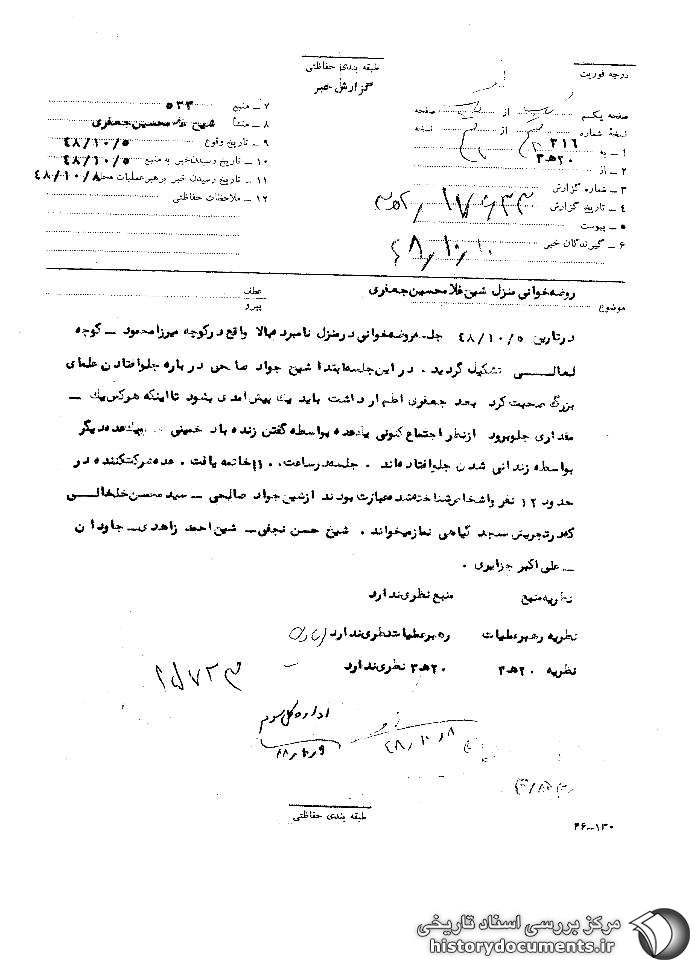 طبقه بندی حفاظتی
درجه فوریت
گزارش خبر
صفحه یکم از صفحه
نسخه شماره از نسخه
۱ ـ به ۳۱۶
۲ ـ از ۲۰ه۳
۳ ـ شماره گزارش
۴ ـ تاریخ گزارش
۵ ـ پیوست
۶ ـ گیرندگان خبر
۴۸/۱۰/۱۰
۷ ـ منبع ۵۳۳
۸ ـ منشأ شیخ غلامحسین جعفری
۹ ـ تاریخ وقوع ۴۸/۱۰/۵
۱۰ ـ تاریخ رسیدن خبر به منبع ۴۸/۱۰/۵
۱۱ ـ تاریخ رسیدن خبر برهبر عملیات محل ۴۸/۱۰/۸
۱۲ ـ ملاحظات حفاظتی
موضوع روضه خوانی منزل شیخ غلامحسین جعفری
عطف
پیرو
در تاریخ ۴۸/۱۰/۵ جلسه روضه خوانی در منزل نامبرده بالا واقع در کوچه میرزا محمود ـ کوچه
تشکیل گردید . در این جلسه ابتدا شیخ جواد صالحی در باره جلو افتادن علمای
بزرگ صحبت کرد بعد جعفری اظهار داشت باید یک پیش آمدی بشود تا اینکه هرکس یک ـ
مقداری جلو برود از نظر اجتماع کنونی یک عده بواسطه گفتن زنده باد خمینی ـ و یک عده دیگر
بواسطه زندانی شدن جلو افتاده اند . جلسه در ساعت خاتمه یافت . عده شرکت کننده در
حدود ۱۲ نفر و اشخاص شناخته شده عبارت بودند از شیخ جواد صالحی ـ سید محسن خلخالی
که در تجریش مسجد گیاهی نماز میخواند . شیخ حسن نجفی ـ شیخ احمد زاهدی ـ جاودان
ـ علی اکبر جزایری .
نظریه منبع منبع نظری ندارد
نظریه رهبر عملیات رهبر عملیات نظری ندارد
نظریه ۲۰ه۳ ۲۰ه۳ نظری ندارد
اداره کل سوم
۴۸/۱۰/۸
۴۸/۱۰/۹
طبقه بندی حفاظتی
۲۶ـ۱۳۰
مرکز بررسی اسناد تاریخی
historydocuments.ir